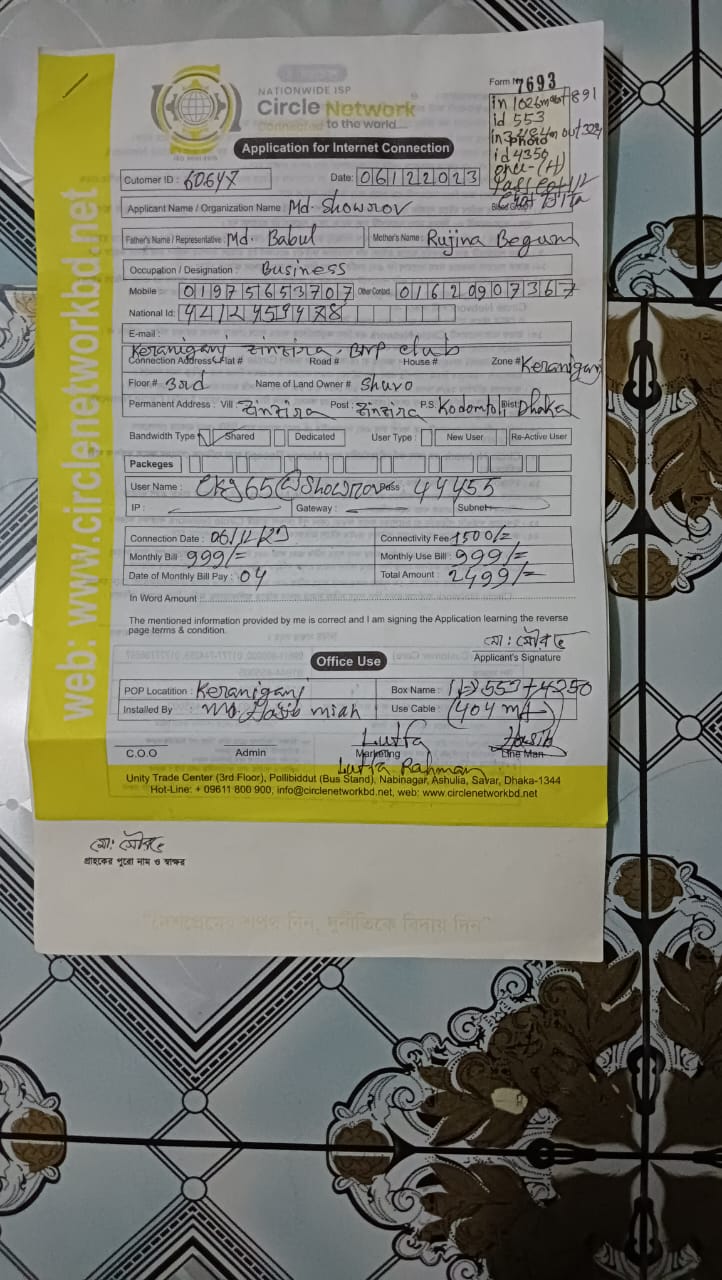 NATIONWIDE ISP
Circle Network
Connected to the world....
Form № 7693
in 1026m out 891
id 553
in 3484m out 3224
Photo
id 4350
onu-(H)
Application for Internet Connection
Cutomer ID : 60647
Date: 06122023
Blood Group
Applicant Name / Organization Name : Md. Showrov
Father's Name / Representative : Md. Babul Mother's Name : Rujina Begum
Occupation / Designation : Business
Mobile 01975653707 Other Contact 01620907367
National Id:
E-mail :
Keraniganj Zinzira, BNP club
Connection Address: Flat # Road # House # Zone # Keraniganj
Floor # 3rd Name of Land Owner # Shuvo
Permanent Address : Vill : Zinzira Post : Zinzira P.S : Kodomtoli Dist : Dhaka
Bandwidth Type Shared Dedicated User Type : New User Re-Active User
Packeges
User Name : Ckg65@Showrov Pass : 44455
IP : Gateway : Subnet
Connection Date : Connectivity Fee 1500/=
Monthly Bill : 999/= Monthly Use Bill : 999/=
Date of Monthly Bill Pay : 04 Total Amount : 2499/=
In Word Amount
The mentioned information provided by me is correct and I am signing the Application learning the reverse
page terms & condition.
মো: সৌরভ
Applicant's Signature
Office Use
POP Locatition : Keraniganj Box Name :
Installed By : Md. Hasib miah Use Cable : (404 m)
Lutfa Hasib
C.O.O Admin Marketing Line Man
Lutfa Rahman
Unity Trade Center (3rd Floor), Pollibiddut (Bus Stand), Nabinagar, Ashulia, Savar, Dhaka-1344
Hot-Line: + 09611 800 900, info@circlenetworkbd.net, web: www.circlenetworkbd.net
web: www.circlenetworkbd.net
মো: সৌরভ
গ্রাহকের পুরো নাম ও স্বাক্ষর
"দেশপ্রেমের শপথ নিন, দুর্নীতিকে বিদায় দিন"